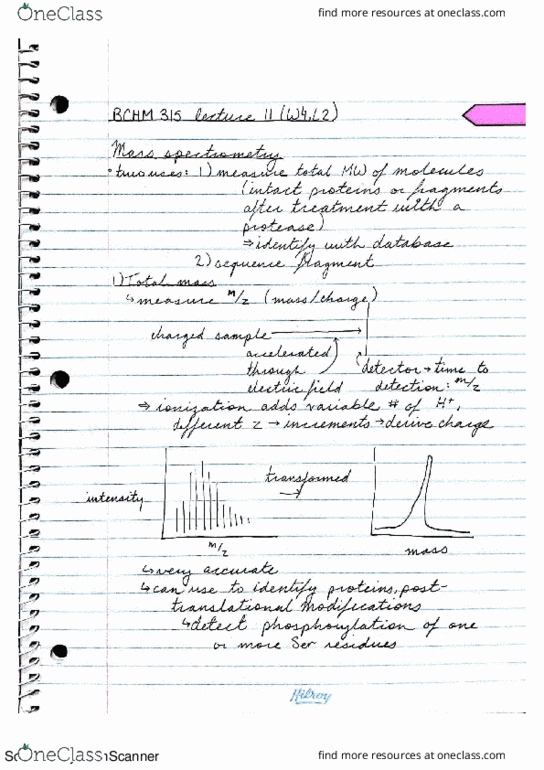 OneClass find more resources at oneclass.com
BCHM 315 lecture 11 (W4,L2)
Mass spectrometry
• two uses: 1) measure total MW of molecules
(intact proteins or fragments
after treatment with a
protease)
⇒ identify with database
2) sequence fragment
1) Total mass
↳ measure m/z (mass/charge)
charged sample
accelerated
through
electric field
detector → time to
detection: m/z
⇒ ionization adds variable # of H⁺,
different z → increments → derive charge
intensity
m/z
transformed
→
mass
↳ very accurate
↳ can use to identify proteins, post-
translational modifications
↳ detect phosphorylation of one
or more Ser residues
Hilroy
OneClass Scanner find more resources at oneclass.com